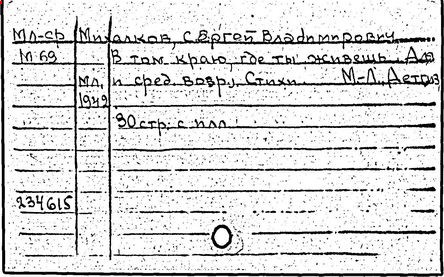 Мл-ср Михалков, Сергей Владимирович
М 69 В том краю, где ты живешь. Для
мл. и сред. возр., Стихи М-Л, Детгиз
1949
30 стр. с илл.
234615